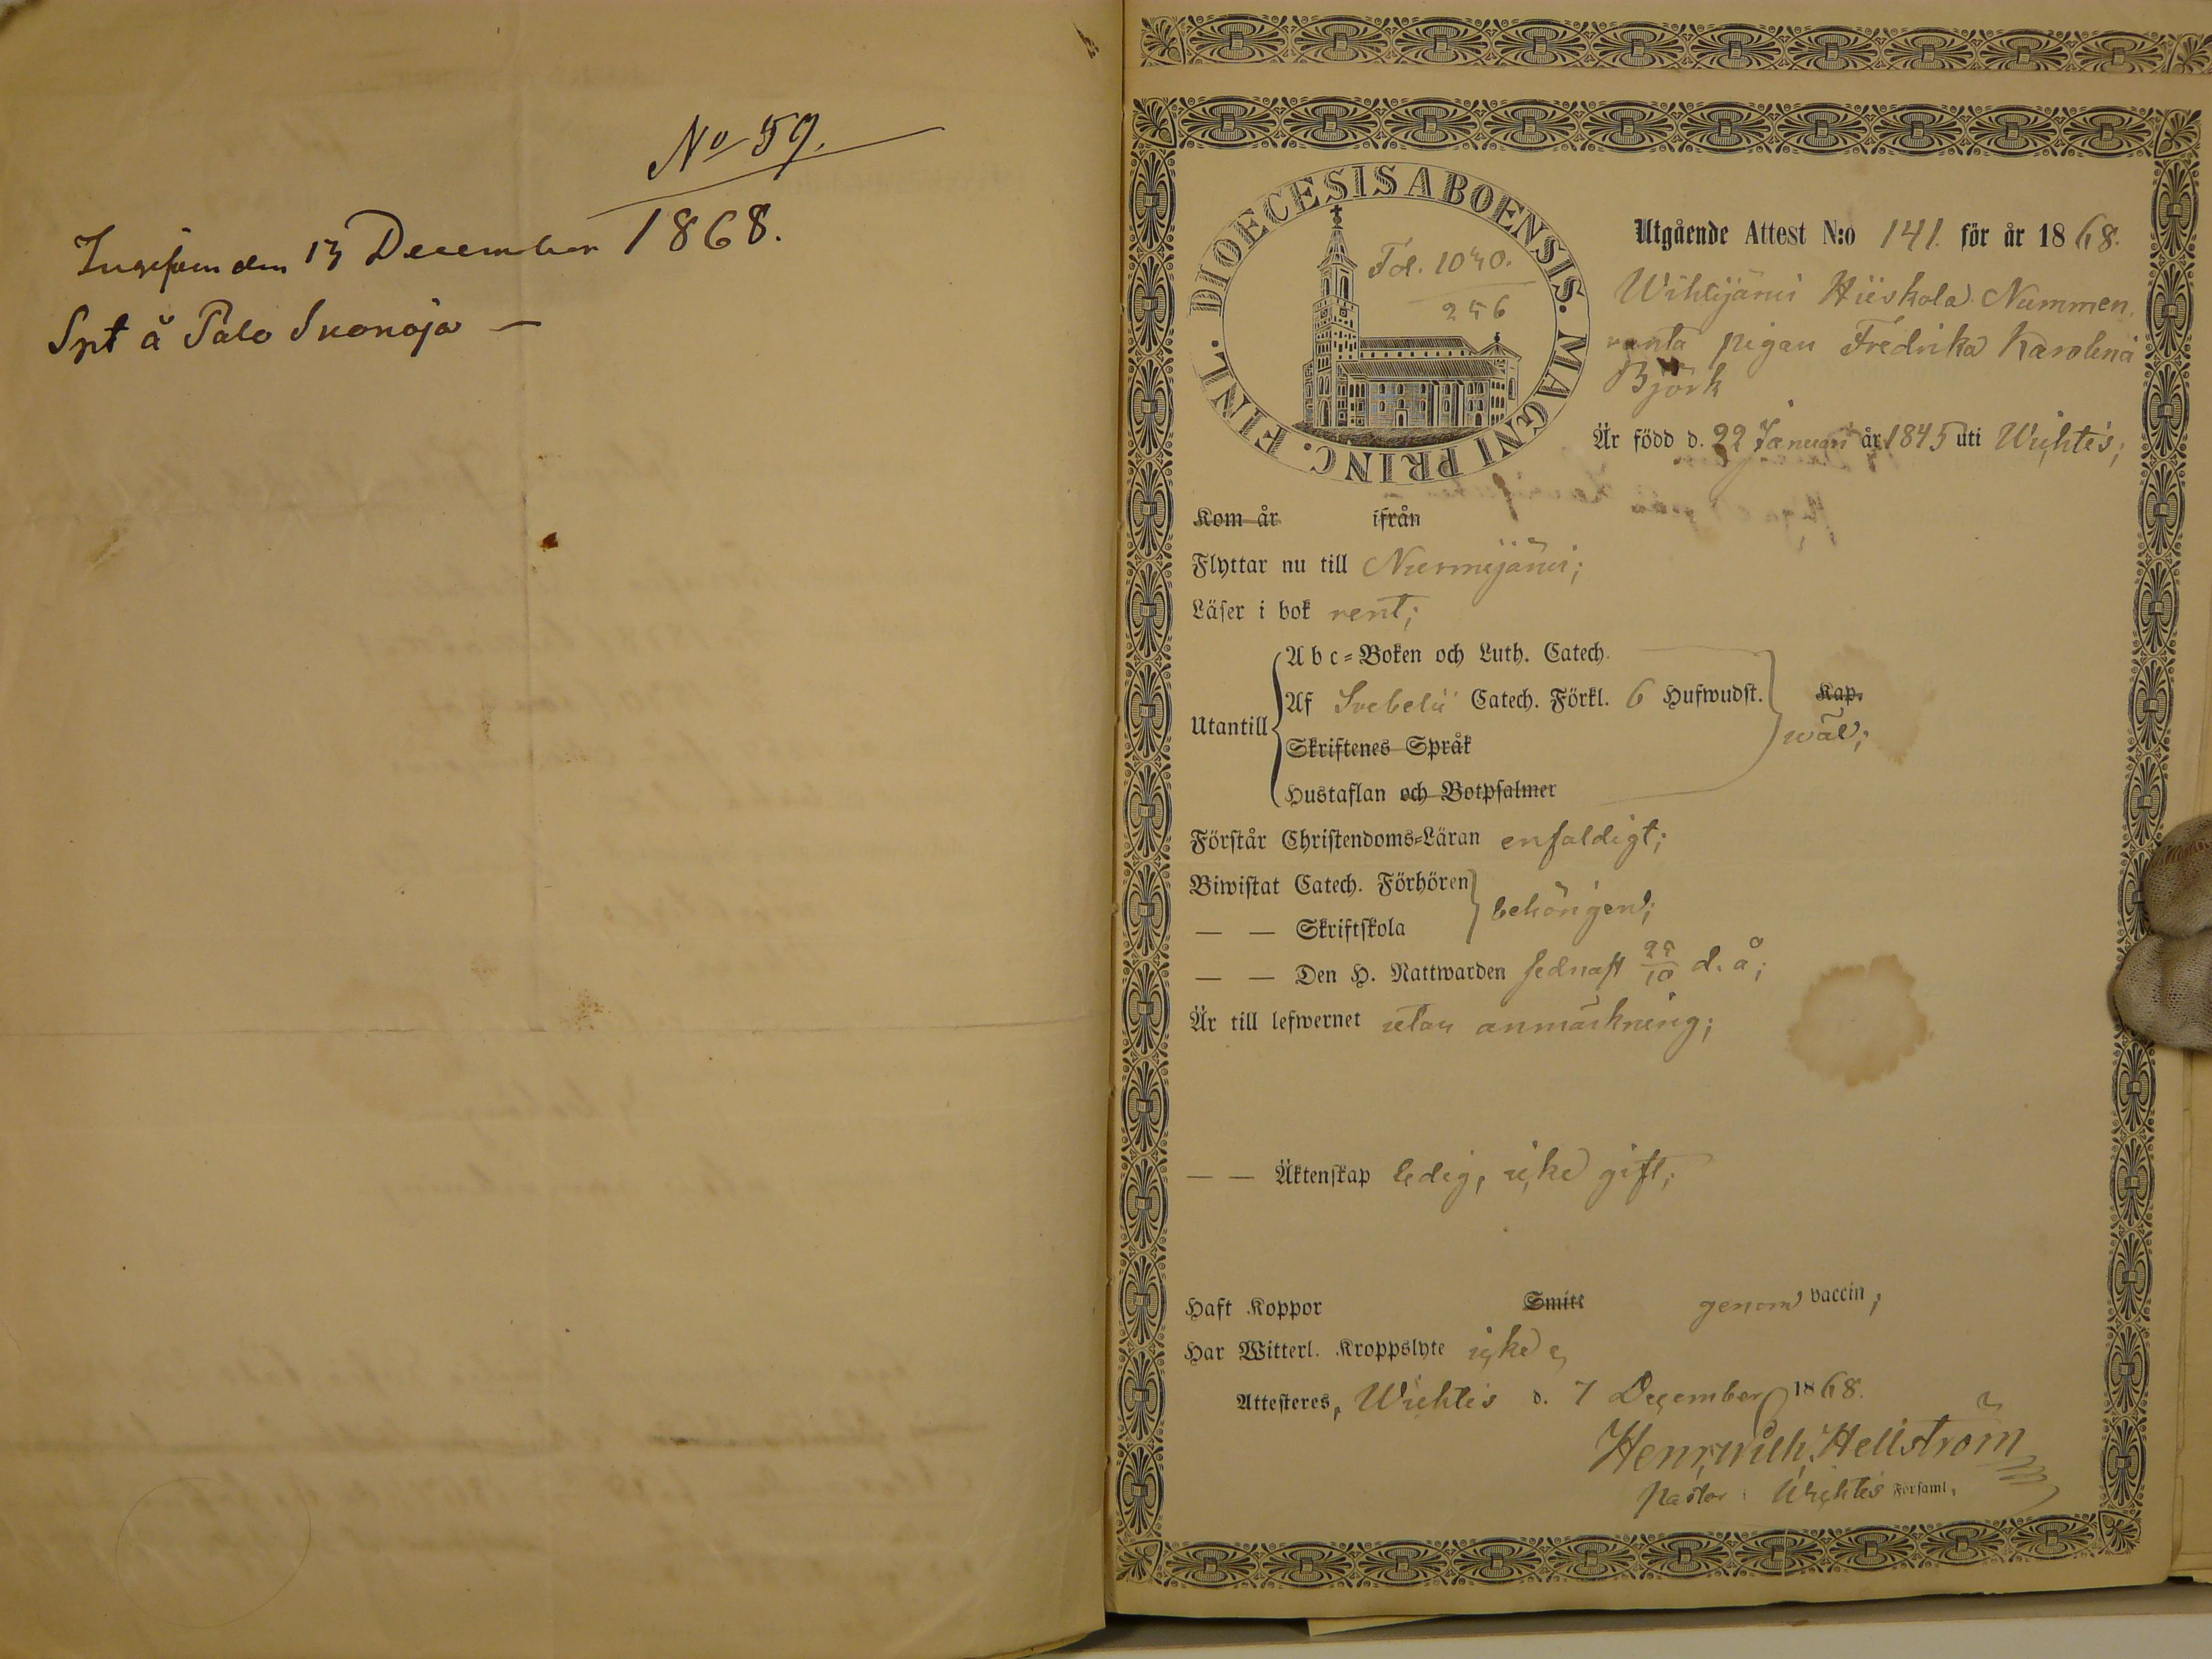 No 59.
den 13 December 1868.
Spt å Palo
DIOECESIS ABOENSIS. MAGNI PRINC. FINL.
Fol. 1040.
256
Utgående Attest N:o 141. för år 1868.
Wihtijärvi Hiiskola Nummen,
ranta pigan Fredrika Karolina
Björk
Är född d. 22 Januari år 1845 uti Wichtis;
Kom år ifrån
Flyttar nu till Nurmijärvi;
Läser i bok rent;
Abc-Boken och Luth. Catech.
Utantill Af Svebelii Catech. Förkl. 6 Hufwudst. Kap.
wäl;
Skriftenes Språk
Hustaflan och Botpsalmer
Förstår Christendoms-Läran enfaldigt;
Biwistat Catech. Förhören
behörigen;
— — Skriftskola
— — Den H. Nattwarden sednast 25/10 d. å;
Är till lefwernet utan anmärkning;
— — Äktenskap ledig, icke gift;
Haft Koppor Smitt genom vaccin;
Har Witterl. Kroppslyte icke
Attesteres, Wichtis d. 7 December 1868.
Henr. Wilh. Hellström
Pastor i Wichtis Församl.